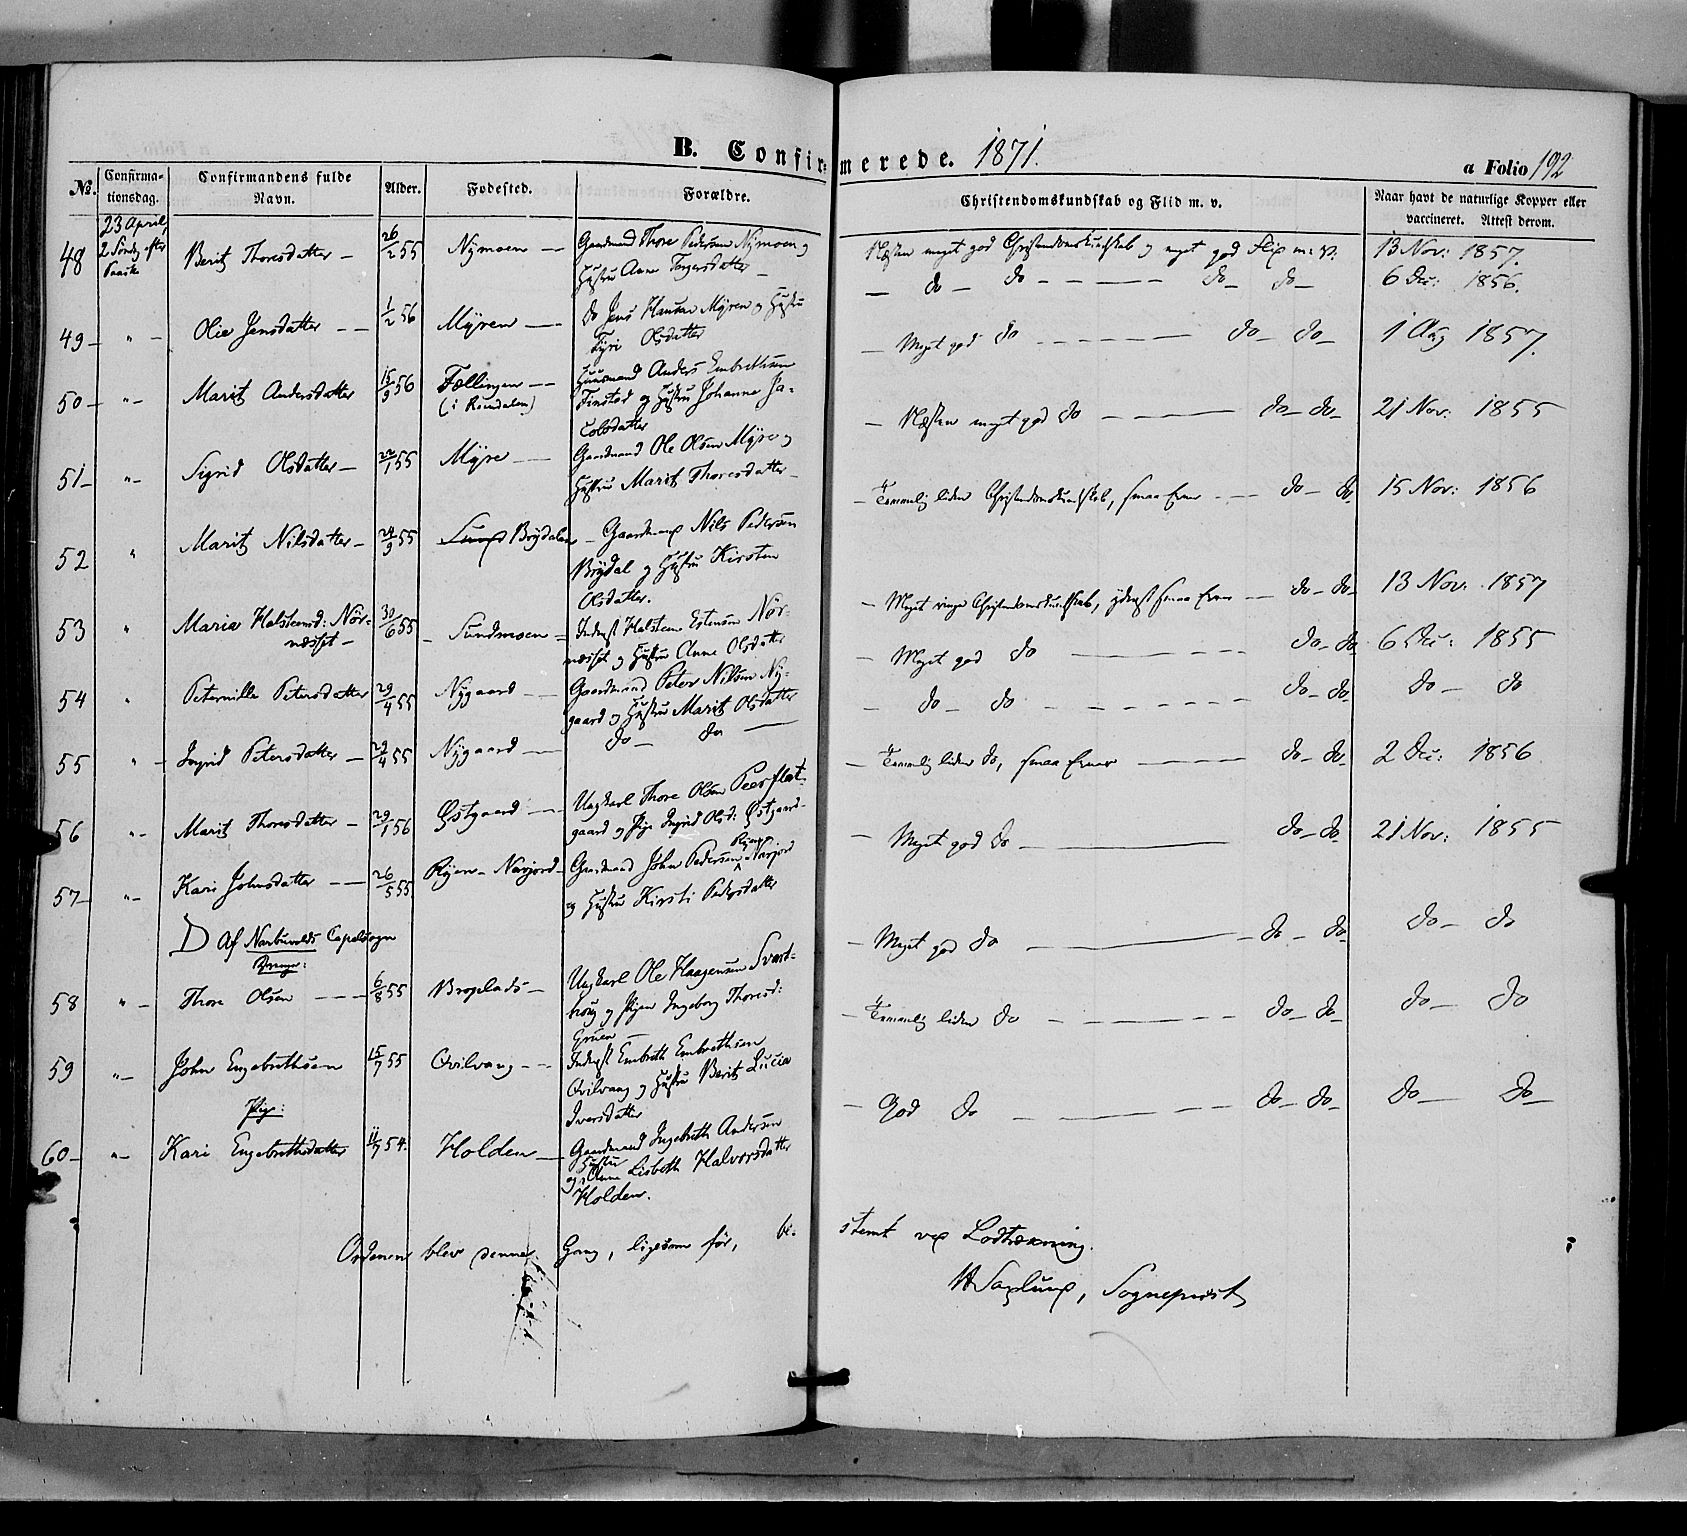 B. Confirmerede. 1871.
a Folio 192
No. Confirmationsdag. Confirmandens fulde Navn. Alder. Fødested. Forældre. Christendomskundskab og Flid m. v. Naar havt de naturlige Kopper eller vaccineret. Attest derom.
23 April,
2 Søndag efter
Paaske
48 Berit Thoresdatter – 26/2 55 Nymoen — Gaardmand Thore Pedersen Nymoen og
Hustru Anne
Næsten meget god Christendomskundskab og meget god Flid m: v: 13 Nov: 1857.
49 – " – Olie Jensdatter – – 1/2 56 Myren — do Jens Hansen Myren og Hustru
Olsdatter
— do – do – – – do – do – 6 Dec: 1856.
50 – " – Marit Andersdatter 15/9 56 Fællingen – –
(i Rendalen)
Huusmand Anders Embrethsen
Finstad og Hustru Johanne Ja-
cobsdatter
— Meget god do – – – do – do – 1 Aug 1857.
51 – " – Sigrid Olsdatter – 22/1 55 Myre — Gaardmand Ole Olsen Myre og
Hustru Marit Thoresdatter –
— Næsten meget god do – – – do – do – 21 Nov: 1855
52 " Marit Nilsdatter – 24/9 55 Brydalen – Gaardmand Nils Pedersen
Brydal og Hustru Kirsten
Olsdatter.
— Temmelig liden Christendomskundskab, smaa Evner – – do – do 15 Nov: 1856
53 " Maria Halstensd: Nör-
næsset –
30/6 55 – Sundmoen – Inderst Halsten Estensen Nör-
næsset og Hustru Anne Olsdatter
— Meget ringe Christendomskundskab, yderst smaa Evner – do – do – 13 Nov. 1857
54 " Peternille Petersdatter 29/4 55 Nygaard – – Gaardmand Peter Nilsen Ny-
gaard og Hustru Marit Olsdatter
— Meget god do – – – do – do 6 Dec: 1855
55 " – Ingrid Petersdatter – 29/4 55 Nygaard — do – do —
— do – do – – – do – do – do – do
56 " – Marit Thoresdatter – 29/1 56 Østgaard — Ungkarl Thore Olsen
gaard og Pige Ingrid Olsd: Østgaard –
— Temmelig liden do, smaa Evner – – – do – do – 2 Dec: 1856
57 – " – Kari Johnsdatter — 26/5 55 Røyen – Narjord – Gaardmand John Pedersen Røyen Narjord
og Hustru Kirsti Pedersdatter
— Meget god do – – – do – do – 21 Nov: 1855
D Af Narbuvolds Capelsogn
Drenge:
58 " – Thore Olsen – – – 6/8 55 – Ungkarl Ole Haagensen
og Pigen Ingeborg Thoresd:
Gruen —
— Meget god do – – – do – do – do – do
59 " – John Engebrethsen 15/7 55 Qvilvang – – Inderst Embreth Embrethsen
Qvilvang og Hustru Berit Lucia
Iversdatter
— Temmelig liden do – – – do – do – do – do
Pige:
60 – " – Kari Engebrethsdatter 11/7 54. Holden — Gaardmand Ingebreth Andersen
og Hustru Anne Lisbeth Halvorsdatter
Holden.
— God do – – – do – do – do – do –
Ordenen blev denne Gang, ligesom før, be- stemt ved Lodtrækning.
Sognepræst